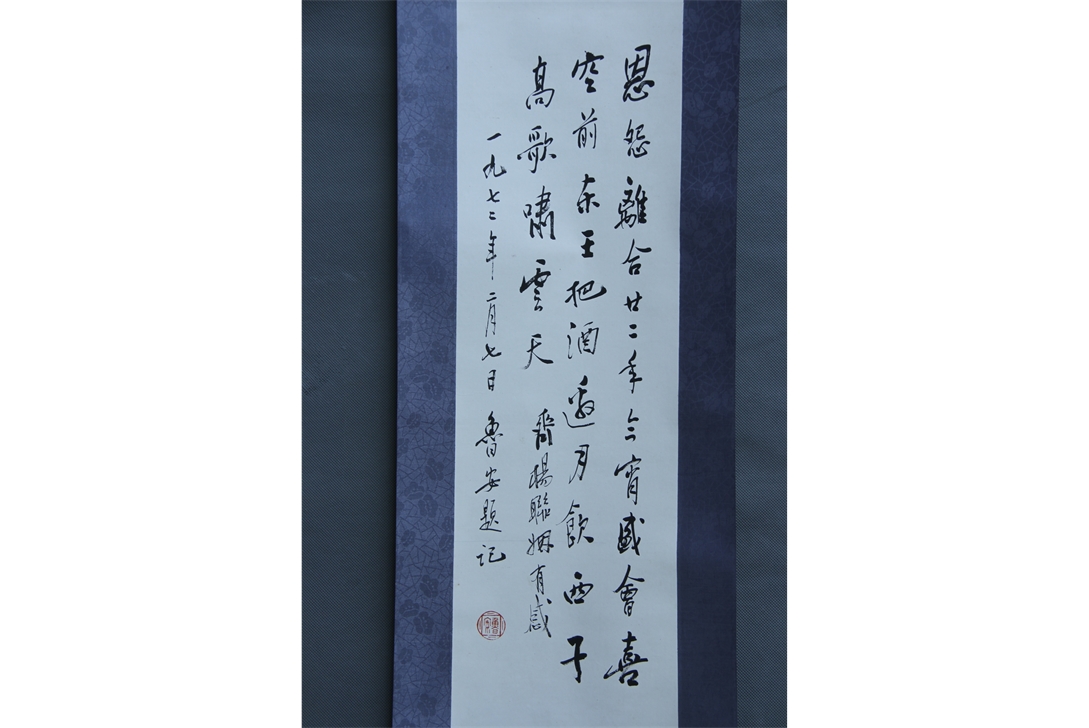 恩怨離合廿二年今宵盛會喜
空前东王把酒邀月飲西子
高歌嘯雲天 齊楊聯姻有感
一九七二年二月七日 魯安題記
魯安